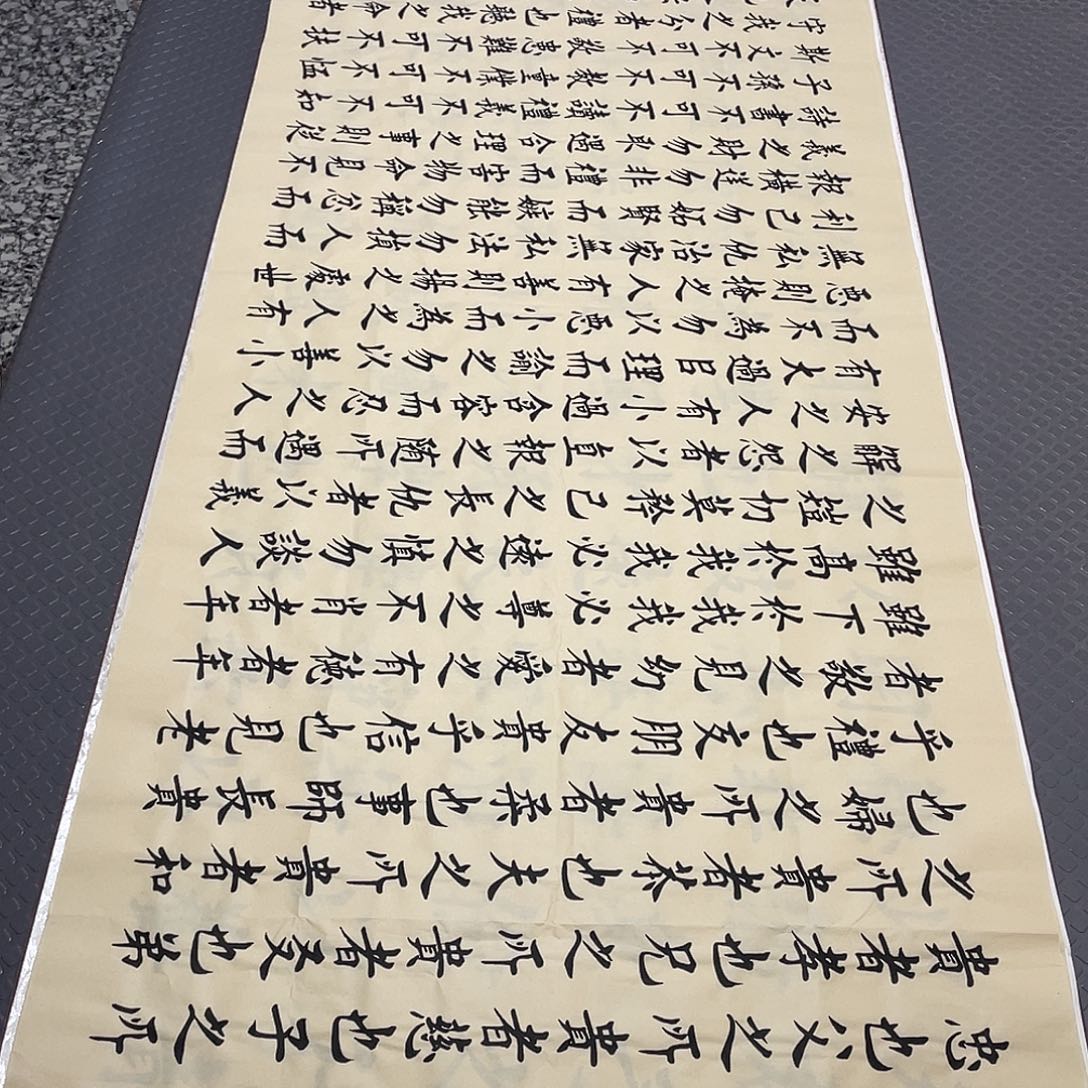 忠也父之所貴者慈也子之所
貴者孝也兄之所貴者友也弟
之所貴者恭也夫之所貴者和
也婦之所貴者柔也事師長貴
乎禮也交朋友貴乎信也見老
者敬之見幼者愛之有德者年
雖下於我我必尊之不肖者年
雖高於我我必遠之慎勿談人
之短切莫矜己之長仇者以義
解之怨者以直報之隨所遇而
安之人有小過含容而忍之人
有大過㠯理而諭之勿以善小
而不為勿以悪小而為之人有
悪則掩之人有善則揚之處世
無私仇治家無私法勿損人而
利己勿妬賢而嫉能勿稱忿而
報橫逆勿非禮而害物命見不
義之財勿取遇合理之事則從
詩書不可不讀禮義不可不知
子孫不可不教童僕不可不恤
斯文不可不敬患難不可不扶
守我之分者禮也聽我之命者